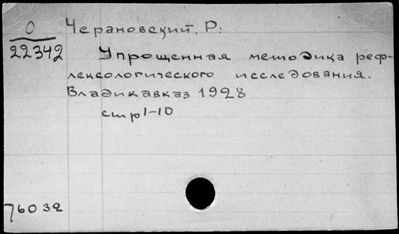 О Черановский. Р.
22342
Упрощенная методика реф-
лексологического исследования.
Владикавказ 1928
стр 1-10
76032